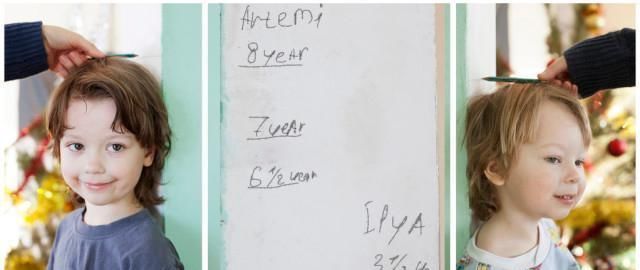 Artemi
8 year
7 year
6 1/2 year
Ipya
3 1/2